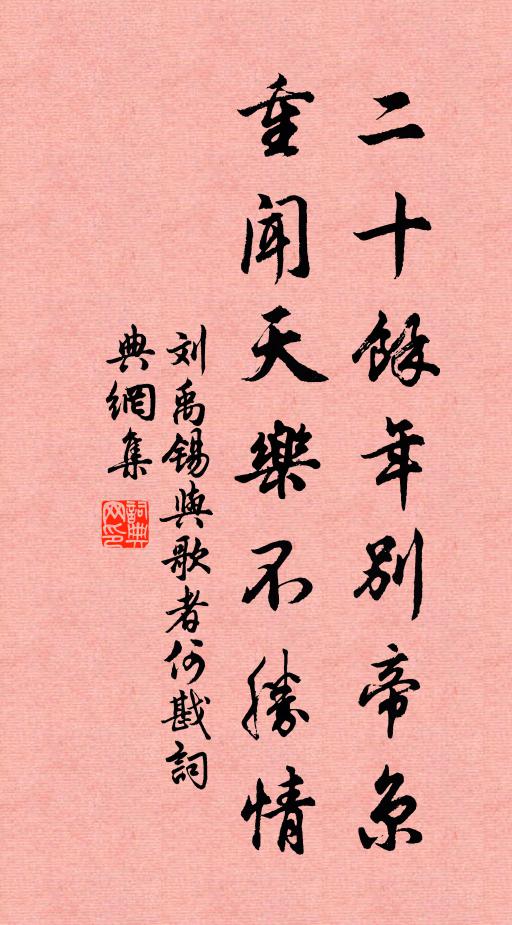 二十餘年別帝京
重闻天樂不勝情
刘禹锡與歌者何戡詞
典網集
詞典网印